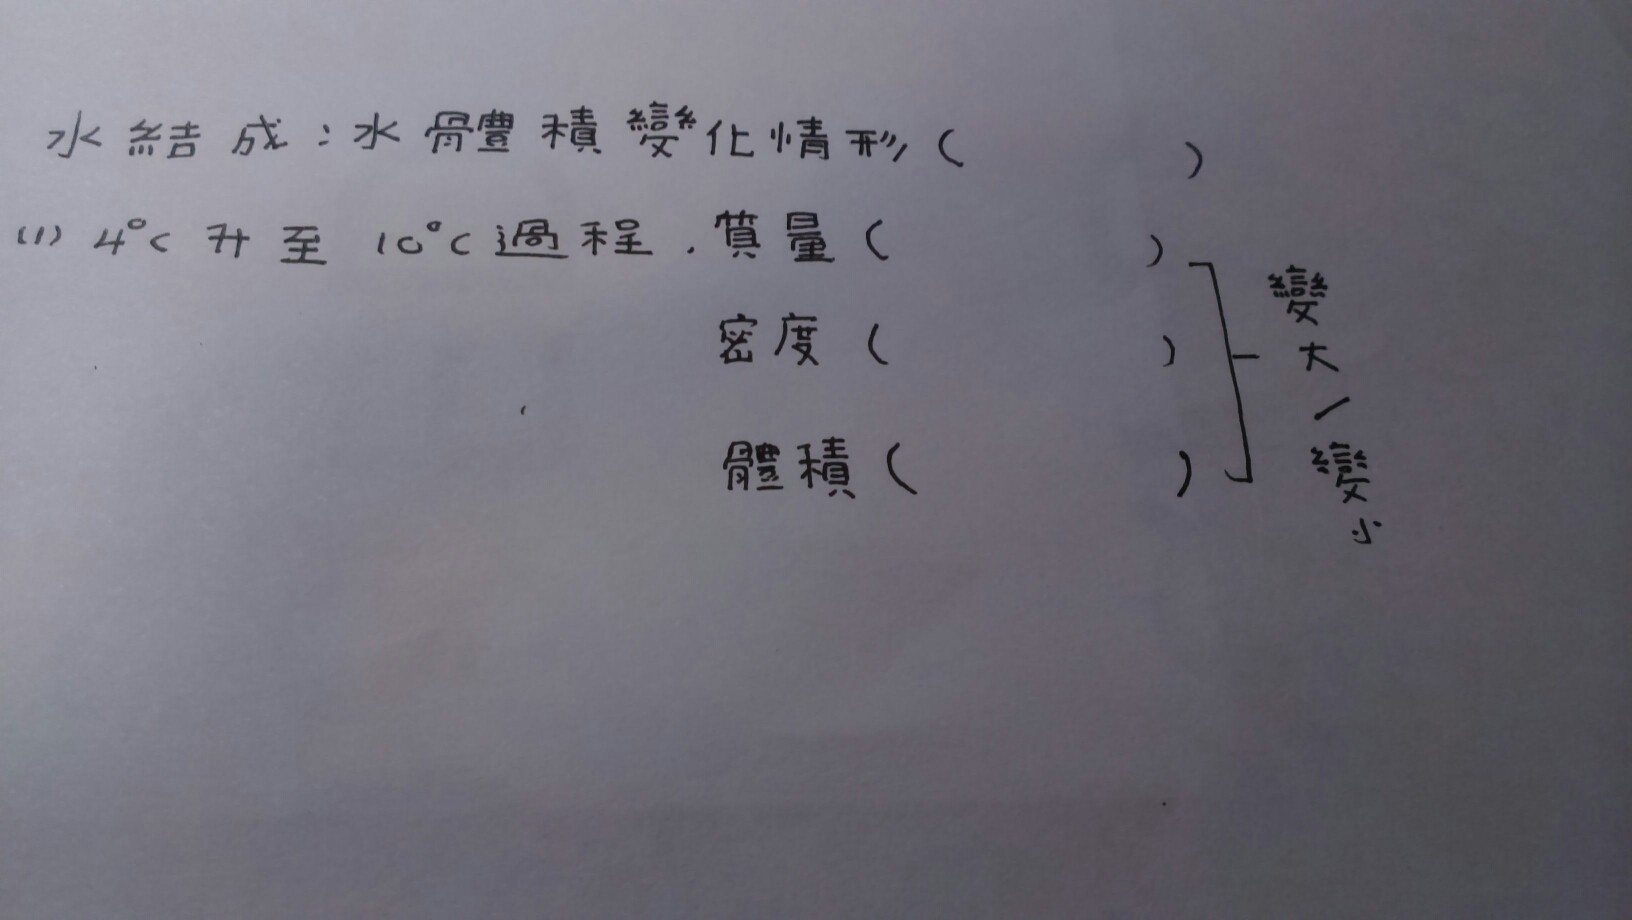 水結成:水體積變化情形(   )
(1) 4°C升至10°C過程.質量(   )
密度(   )
體積(   )
變大/變小